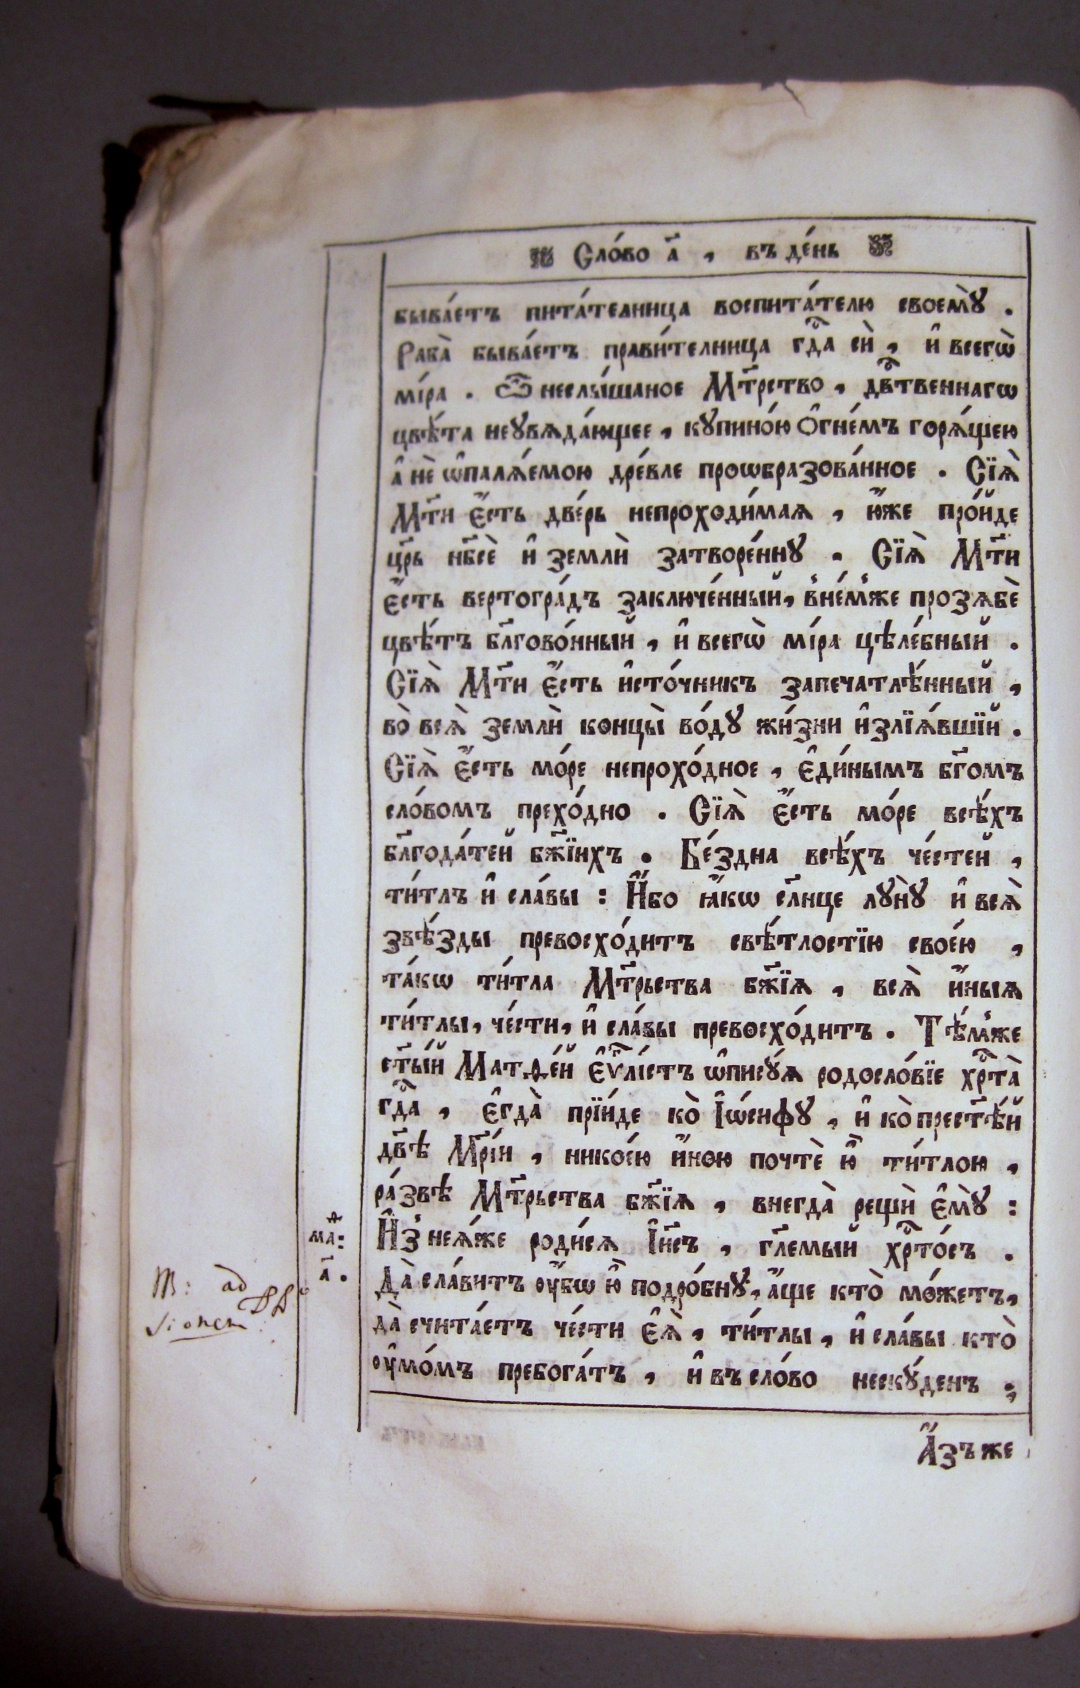 Сло́во а҃ , въ де́нь
быва́етъ пита́телница воспита́телю своемꙋ̀ .
Раба̀ быва́етъ прави́телница гдⷭ҇а сѝ , и҆ всегѡ̀
мі́ра . Ѿ неслы́шаное Мт҃рство , дв҃ⷭ҇твеннагѡ
цвѣ́та неꙋвѧда́ющее , кꙋпино́ю О҆гне́мъ горѧ́щею
а҆ нѐ ѡ҆палѧ́емою дре́вле проѡбразова́нное . Сїѧ̀
Мт҃и Є҆́сть две́рь непроходи́маѧ , ю҆́же про́йде
цр҃ь нб҃сѐ и҆ землѝ затворе́ннꙋ . Сїѧ̀ Мт҃и
є҆́сть вертогра́дъ заключе́нный , в̾не́мже прозѧбѐ
цвѣ́тъ бл҃гово́нный , и҆ всегѡ̀ мі́ра цѣле́бный .
Сїѧ̀ Мт҃и Є҆́сть и҆сто́чникъ запечатлѣ́нный ,
во̀ всѧ̀ землѝ концы̀ во́дꙋ жи́зни и҆злїѧ́вшїй .
Сїѧ̀ Є҆́сть мо́ре непрохо́дное , є҆ди́нымъ бг҃омъ
сло́вомъ прехо́дно . Сїѧ̀ Є҆́сть мо́ре всѣ́хъ
бл҃года́тей бж҃їихъ . Бе́здна всѣ́хъ че́стей ,
ти́тлъ и҆ сла́вы : И҆́бо ꙗ҆́кѡ сл҃нце лꙋнꙋ̀ и҆ всѧ̀
звѣ́зды превосхо́дитъ свѣ́тлостїю свое́ю ,
та́кѡ ти́тла Мт҃рьства бж҃їѧ , всѧ̀ и҆́ныѧ
ти́тлы , че́сти , и҆ сла́вы превосхо́дитъ . Тѣ́мже
ст҃ы́й Матѳе́й Є҆ѵⷢ҇лі́стъ ѡ҆писꙋ́ѧ родосло́вїе хрⷭ҇та̀
гдⷭ҇а , є҆гда̀ прїи́де ко̀ І҆ѡ́сифꙋ , и҆ ко̀ прест҃ѣ́й
дв҃ѣ Мр҃і́и , никое́ю и҆́ною почтѐ ю҆̀ ти́тлою ,
ра́звѣ Мт҃рьства бж҃їѧ , внегда̀ рещѝ є҆мꙋ̀ :
И҆з̾ неѧ́же роди́сѧ І҆и҃съ , гл҃емый хрⷭ҇то́съ .
маⷴ҇ : а҃ .
Да̀ сла́витъ ᲂу҆́бѡ ю҆̀ подро́бнꙋ , а҆́ще кто̀ мо́жетъ ,
да̀ счита́етъ че́сти є҆ѧ̀ , ти́тлы , и҆ сла́вы кто̀
ᲂу҆мо́мъ пребога́тъ , и҆ въ сло́во неску́денъ .
А҆́зъ же